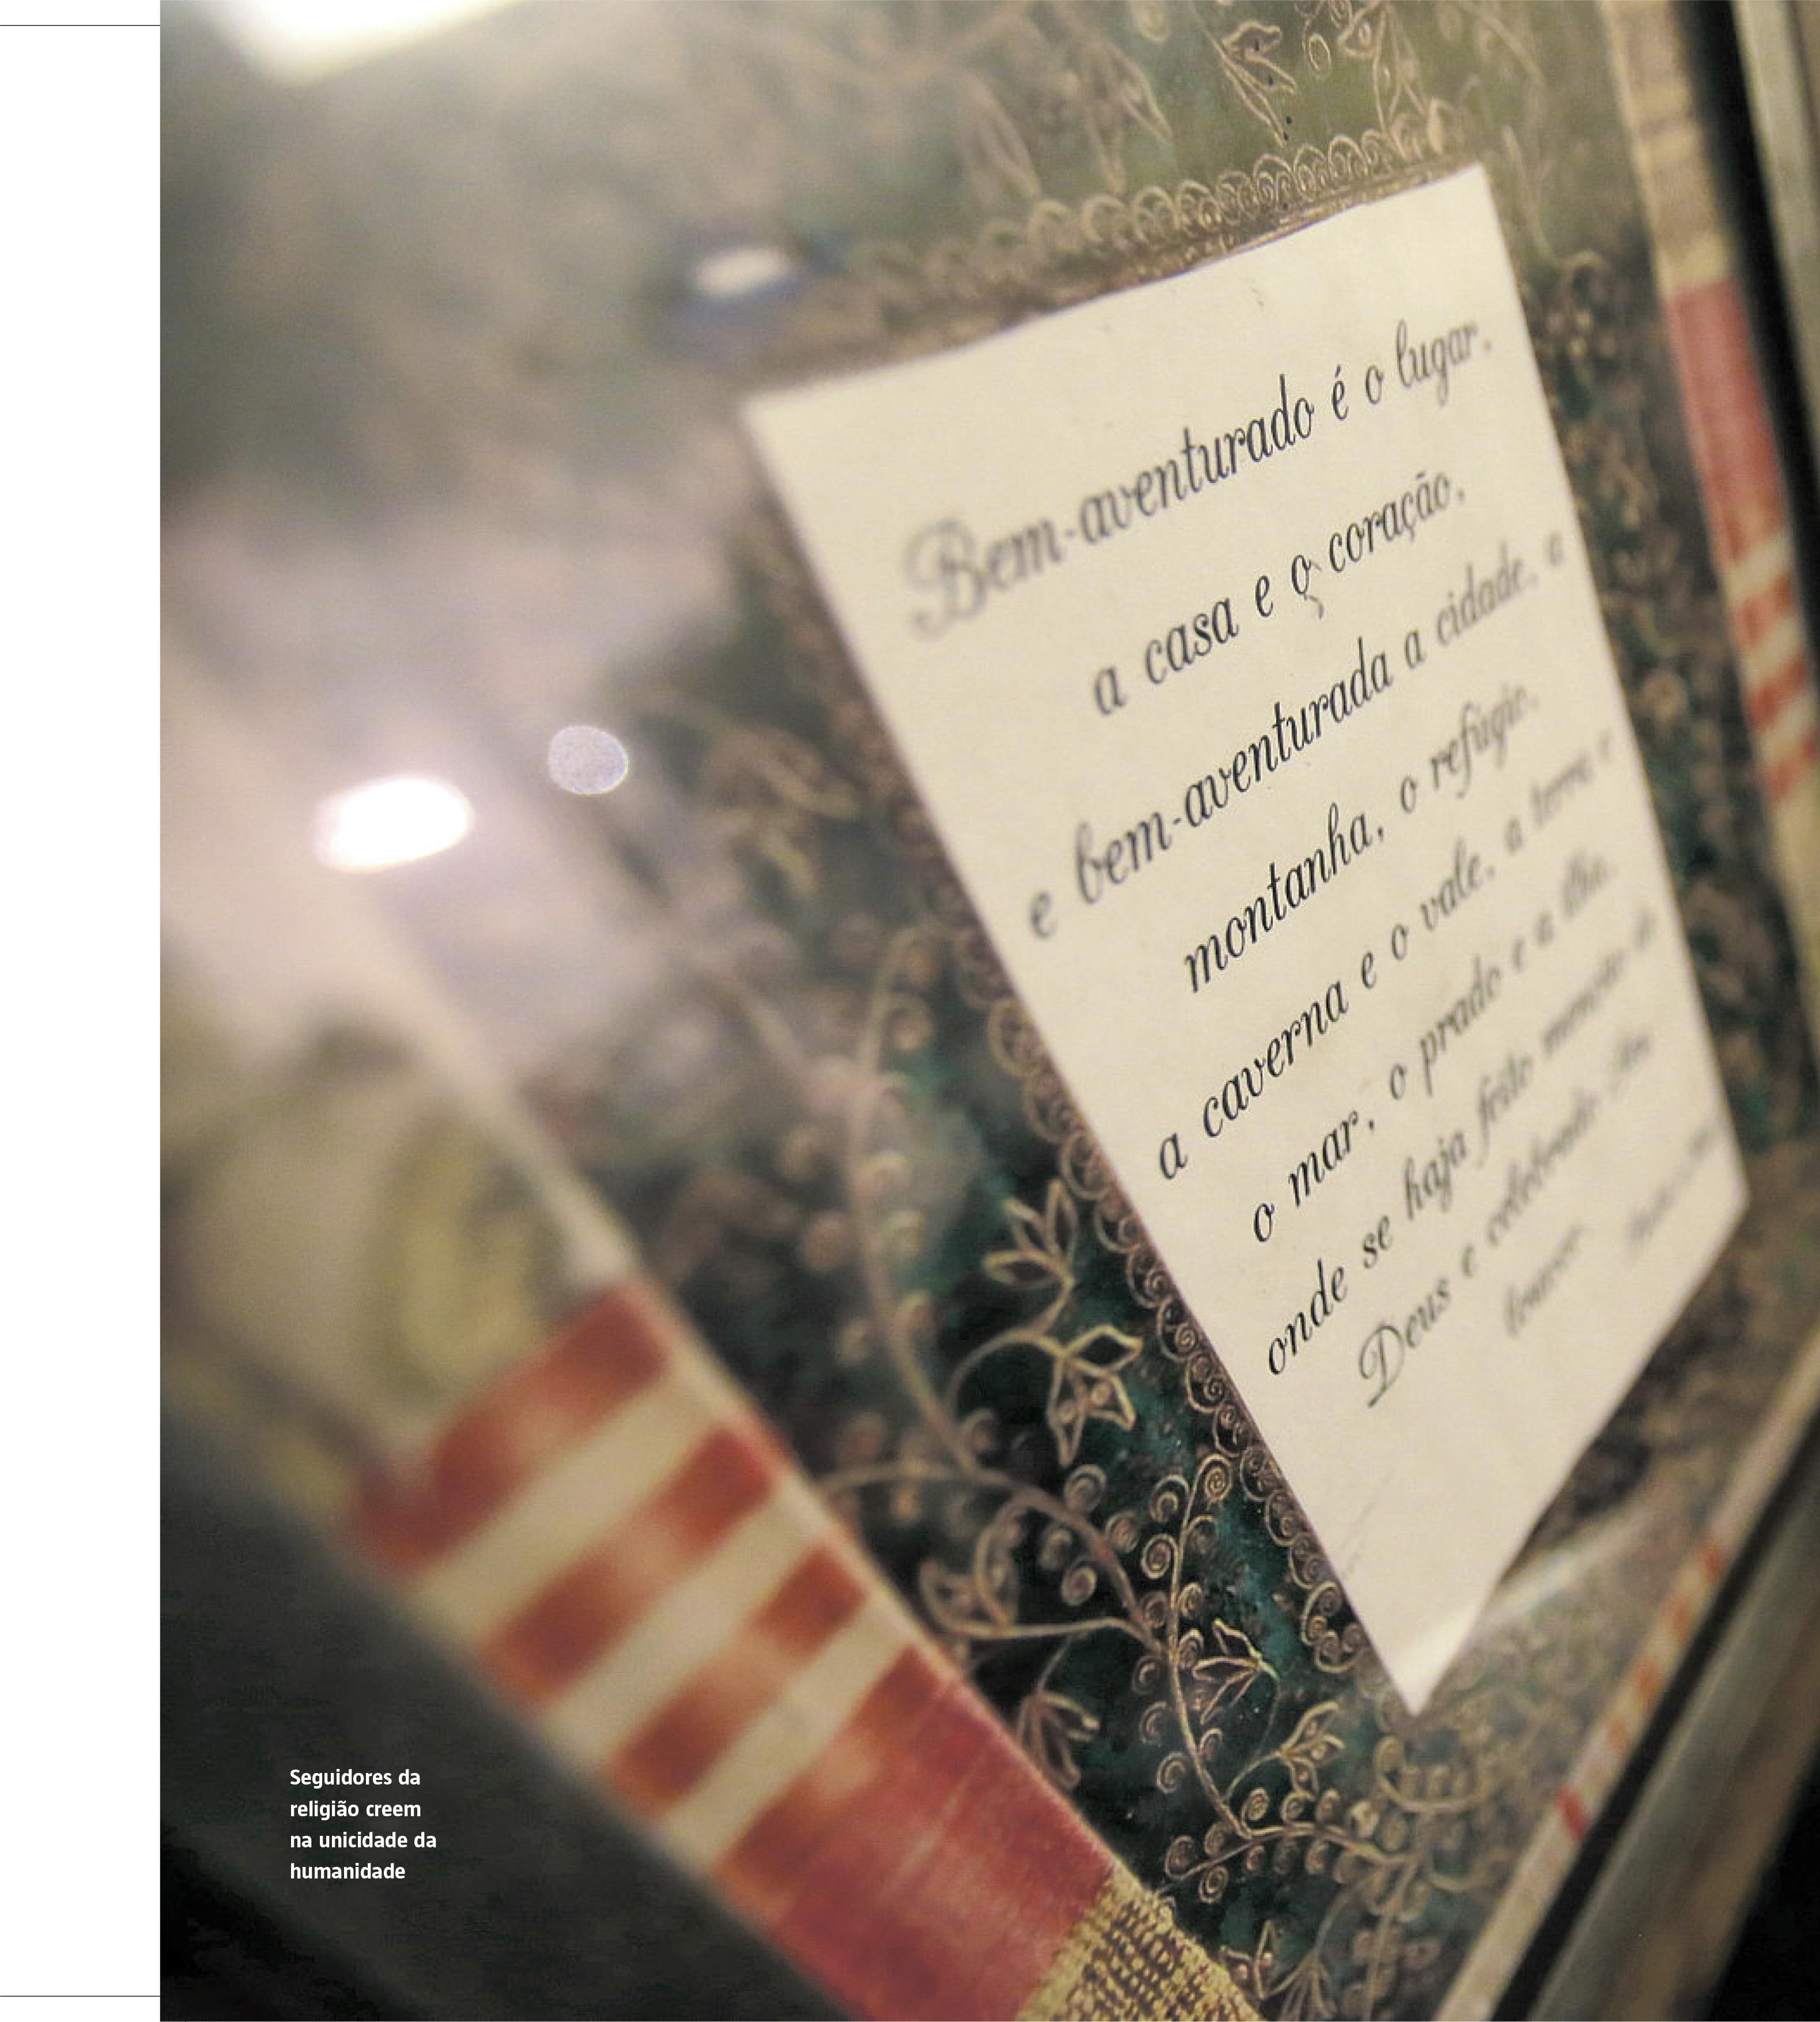 Bem-aventurado é o lugar,
a casa e o coração,
e bem-aventurada a cidade, a
montanha, o refúgio,
a caverna e o vale, a terra e
o mar, o prado e a ilha,
onde se haja feito menção de
Deus e celebrado Seu
louvor.
Seguidores da
religião creem
na unicidade da
humanidade